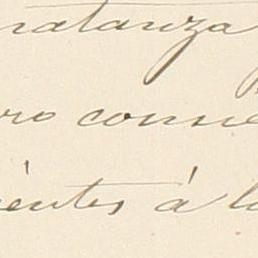 ratanza
ro conne
ientes á l